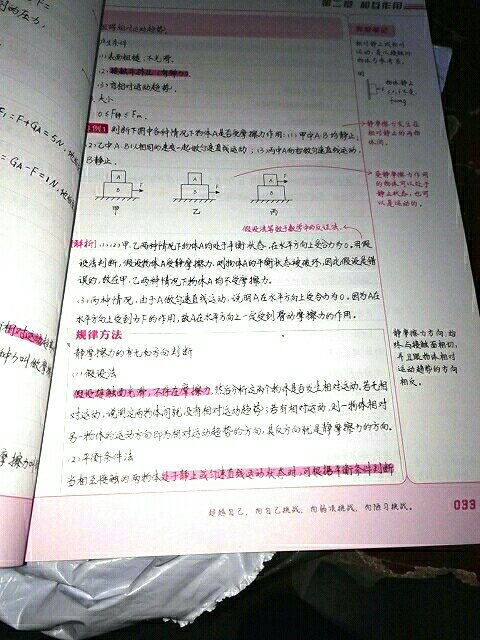 第二章 相互作用
(1)表面粗糙,不光滑.
(3)有相对运动趋势.
大小
判断下图中各种情况下物体A是否受摩擦力作用:(1)甲中A、B均静止,
(2)乙中A、B以相同的速度一起做匀速直线运动;(3)丙中A向右做匀速直线运动,
B静止.
A
B
甲
A
B
乙
A
F
B
丙
假设法类似于数学中的反证法.
[解析](1)(2)甲、乙两种情况下物体A均处于平衡状态,在水平方向上受合力为0。用假
设法判断,假设物体A受静摩擦力,则物体A的平衡状态被破坏,因此假设是错
误的,故在甲、乙两种情况下物体A均不受摩擦力.
(3)丙种情况,由于A做匀速直线运动,说明A在水平方向上受合力为0。因为A在
水平方向上受到力F的作用,故A在水平方向上一定受到滑动摩擦力的作用.
规律方法
静摩擦力的有无和方向判断
(1)假设法
假设接触面光滑,不存在摩擦力,然后分析这两个物体是否发生相对运动。若无相
对运动,说明这两物体间就没有相对运动趋势;若有相对运动,则一物体相对
另一物体的运动方向即为相对运动趋势的方向,其反方向就是静摩擦力的方向。
(2)平衡条件法
当相互接触的两物体处于静止或匀速直线运动状态时,可根据平衡条件判断
相对静止或相对
静摩擦力发生在
相对静止的两物
体间.
受静摩擦力作用
的物体可以处于
静止状态,也可
以是运动的.
静摩擦力方向:始
终与接触面相切,
并且跟物体相对
运动趋势的方向
相反.
超越自己,向自己挑战,向弱项挑战,向陋习挑战。
033
F₁=F+GA=5N
GA-F=1N